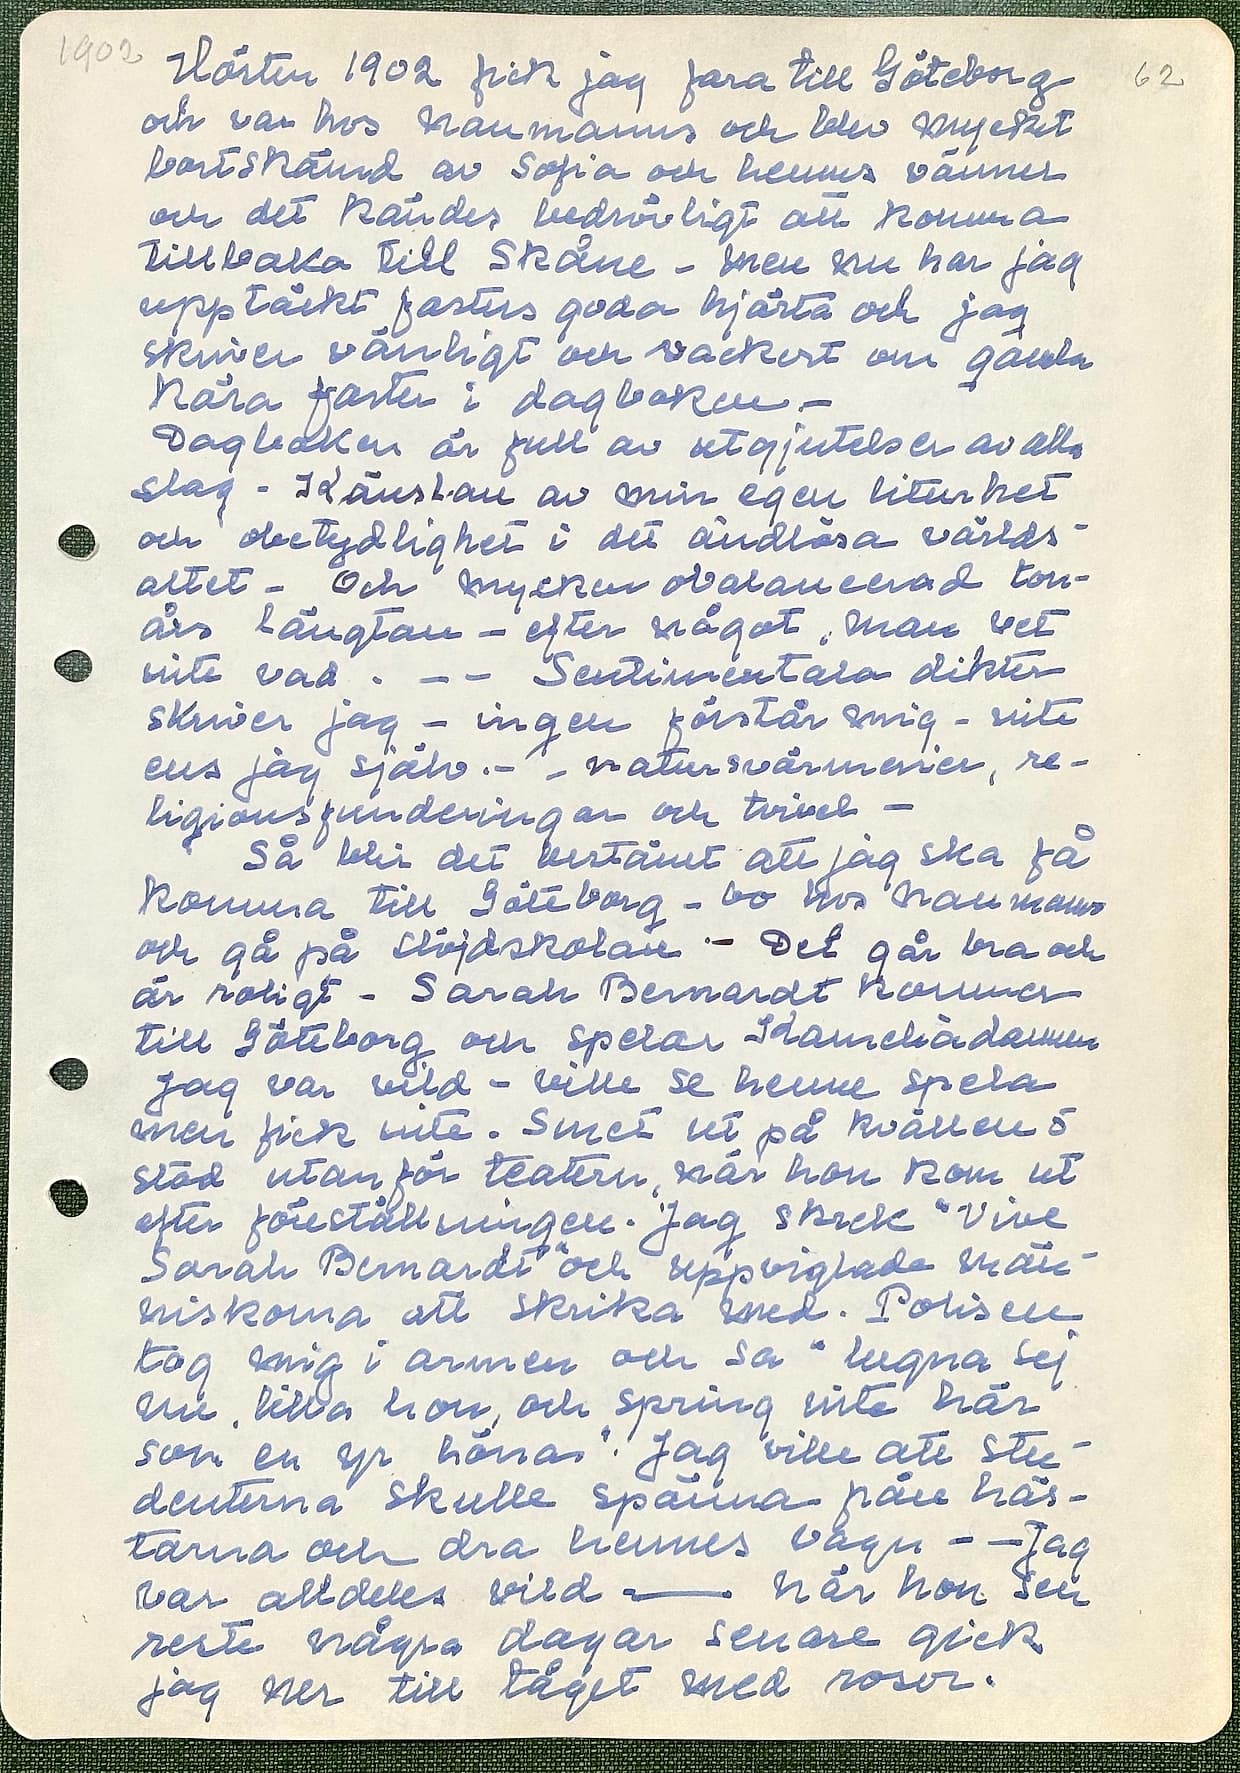 1902
62
Hösten 1902 fick jag fara till Göteborg
och var hos Naumanns och blev mycket
bortskämd av Sofia och hennes vänner
och det kändes bedrövligt att komma
tillbaka till Skåne - men nu har jag
upptäckt fasters goda hjärta och jag
skriver vänligt och vackert om gamla
kära faster i dagboken. -
Dagboken är full av utgjutelser av alla
slag - Känslan av min egen litenhet
och obetydlighet i det ändlösa världs-
altet - Och mycken obalancerad ton-
års längtan - efter något, man vet
inte vad . - - Sentimentala dikter
skriver jag - ingen förstår mig - inte
ens jag själv. - - natursvärmerier, re-
ligionsfunderingar och tvivel -
Så blir det bestämt att jag ska få
komma till Göteborg - bo hos Naumanns
och gå på Slöjdskolan - Det går bra och
är roligt - Sarah Bernardt kommer
till Göteborg och spelar Kameliadamen
Jag var vild - ville se henne spela
men fick inte. Smet ut på kvällen o
stod utanför teatern, när hon kom ut
efter föreställningen. Jag skrek "Vive
Sarah Bernardt" och uppviglade män-
niskorna att skrika med. Polisen
tog mig i armen och sa "lugna sej
nu, lilla hon, och spring inte här
som en yr höna". Jag ville att stu-
denterna skulle spänna från häs-
tarna och dra hennes vagn - - Jag
var alldeles vild — När hon sen
reste några dagar senare gick
jag ner till tåget med rosor.